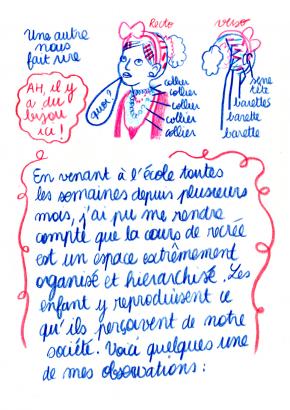 Une autre
nous
fait rire
Recto
verso
AH, il y
a du
bijou
ici !
quoi ?
collier
collier
collier
collier
collier
serre
tête
barettes
barette
barette
En venant à l'École toutes
les semaines depuis plusieurs
mois, j'ai pu me rendre
compte que la cours de recrée
est un espace extrêmement
organisé et hierarchisé. Les
enfant y reproduisent ce
qu'ils perçoivent de notre
société. Voici quelques une
de mes observations :